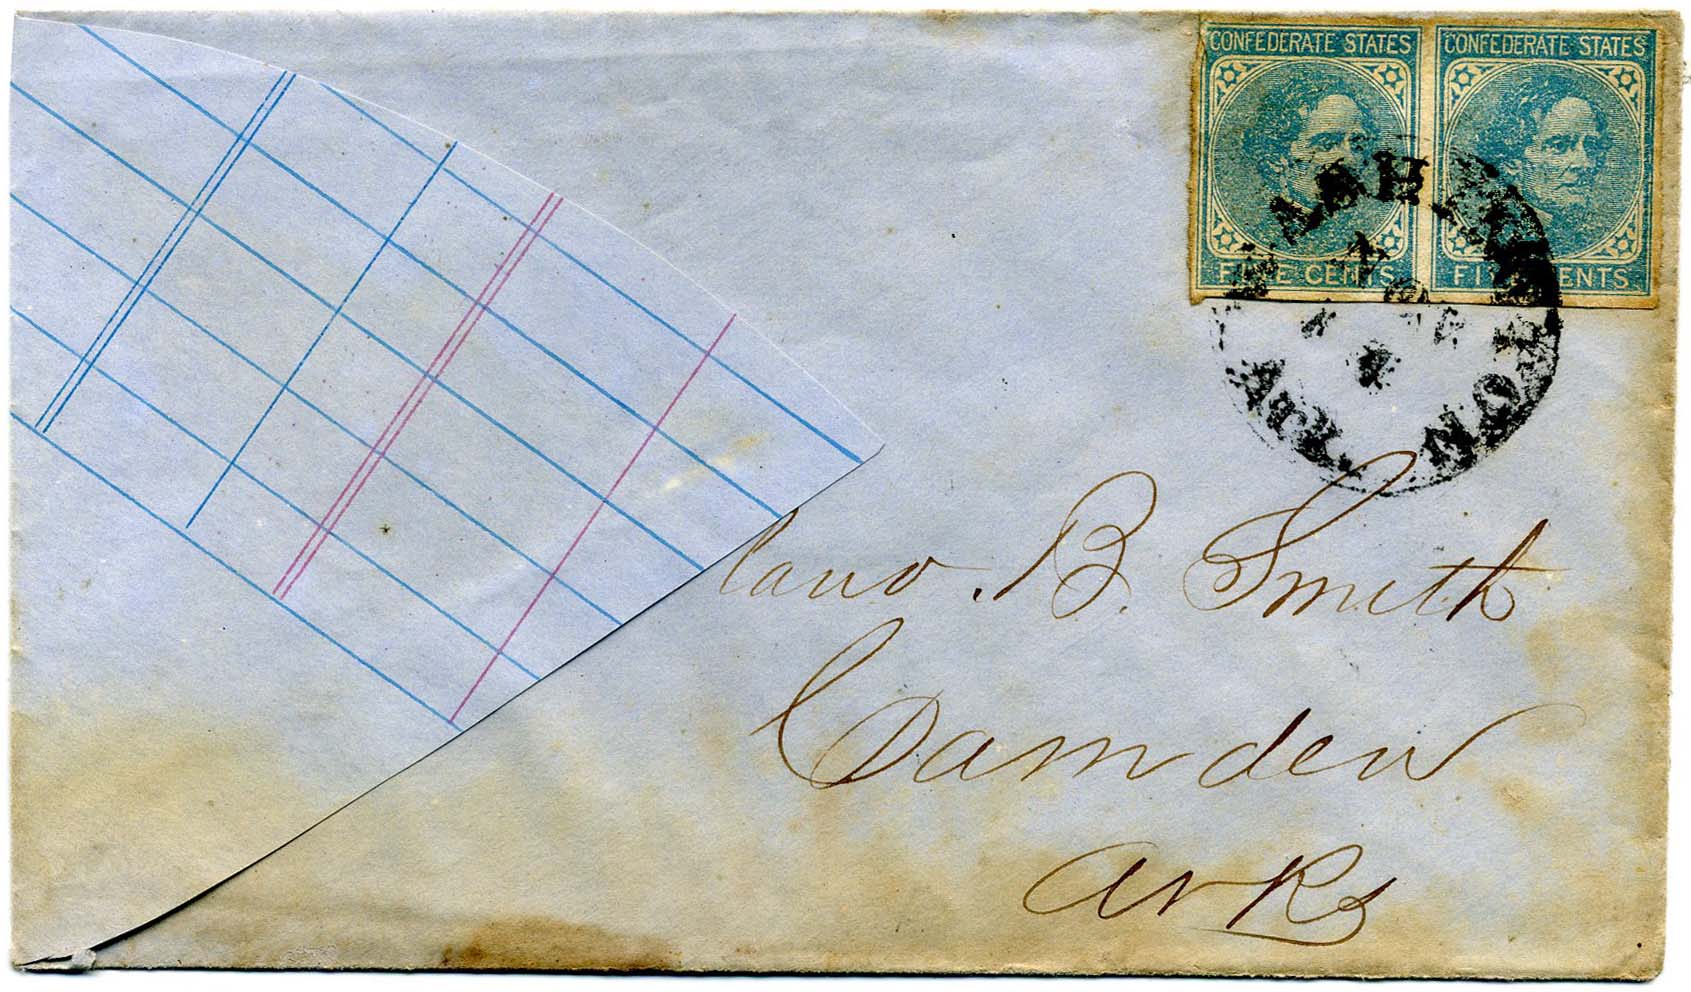 CONFEDERATE STATES CONFEDERATE STATES
FIVE CENTS FIVE CENTS
WASHINGTON
ARK.
B. Smith
Camden
Arks